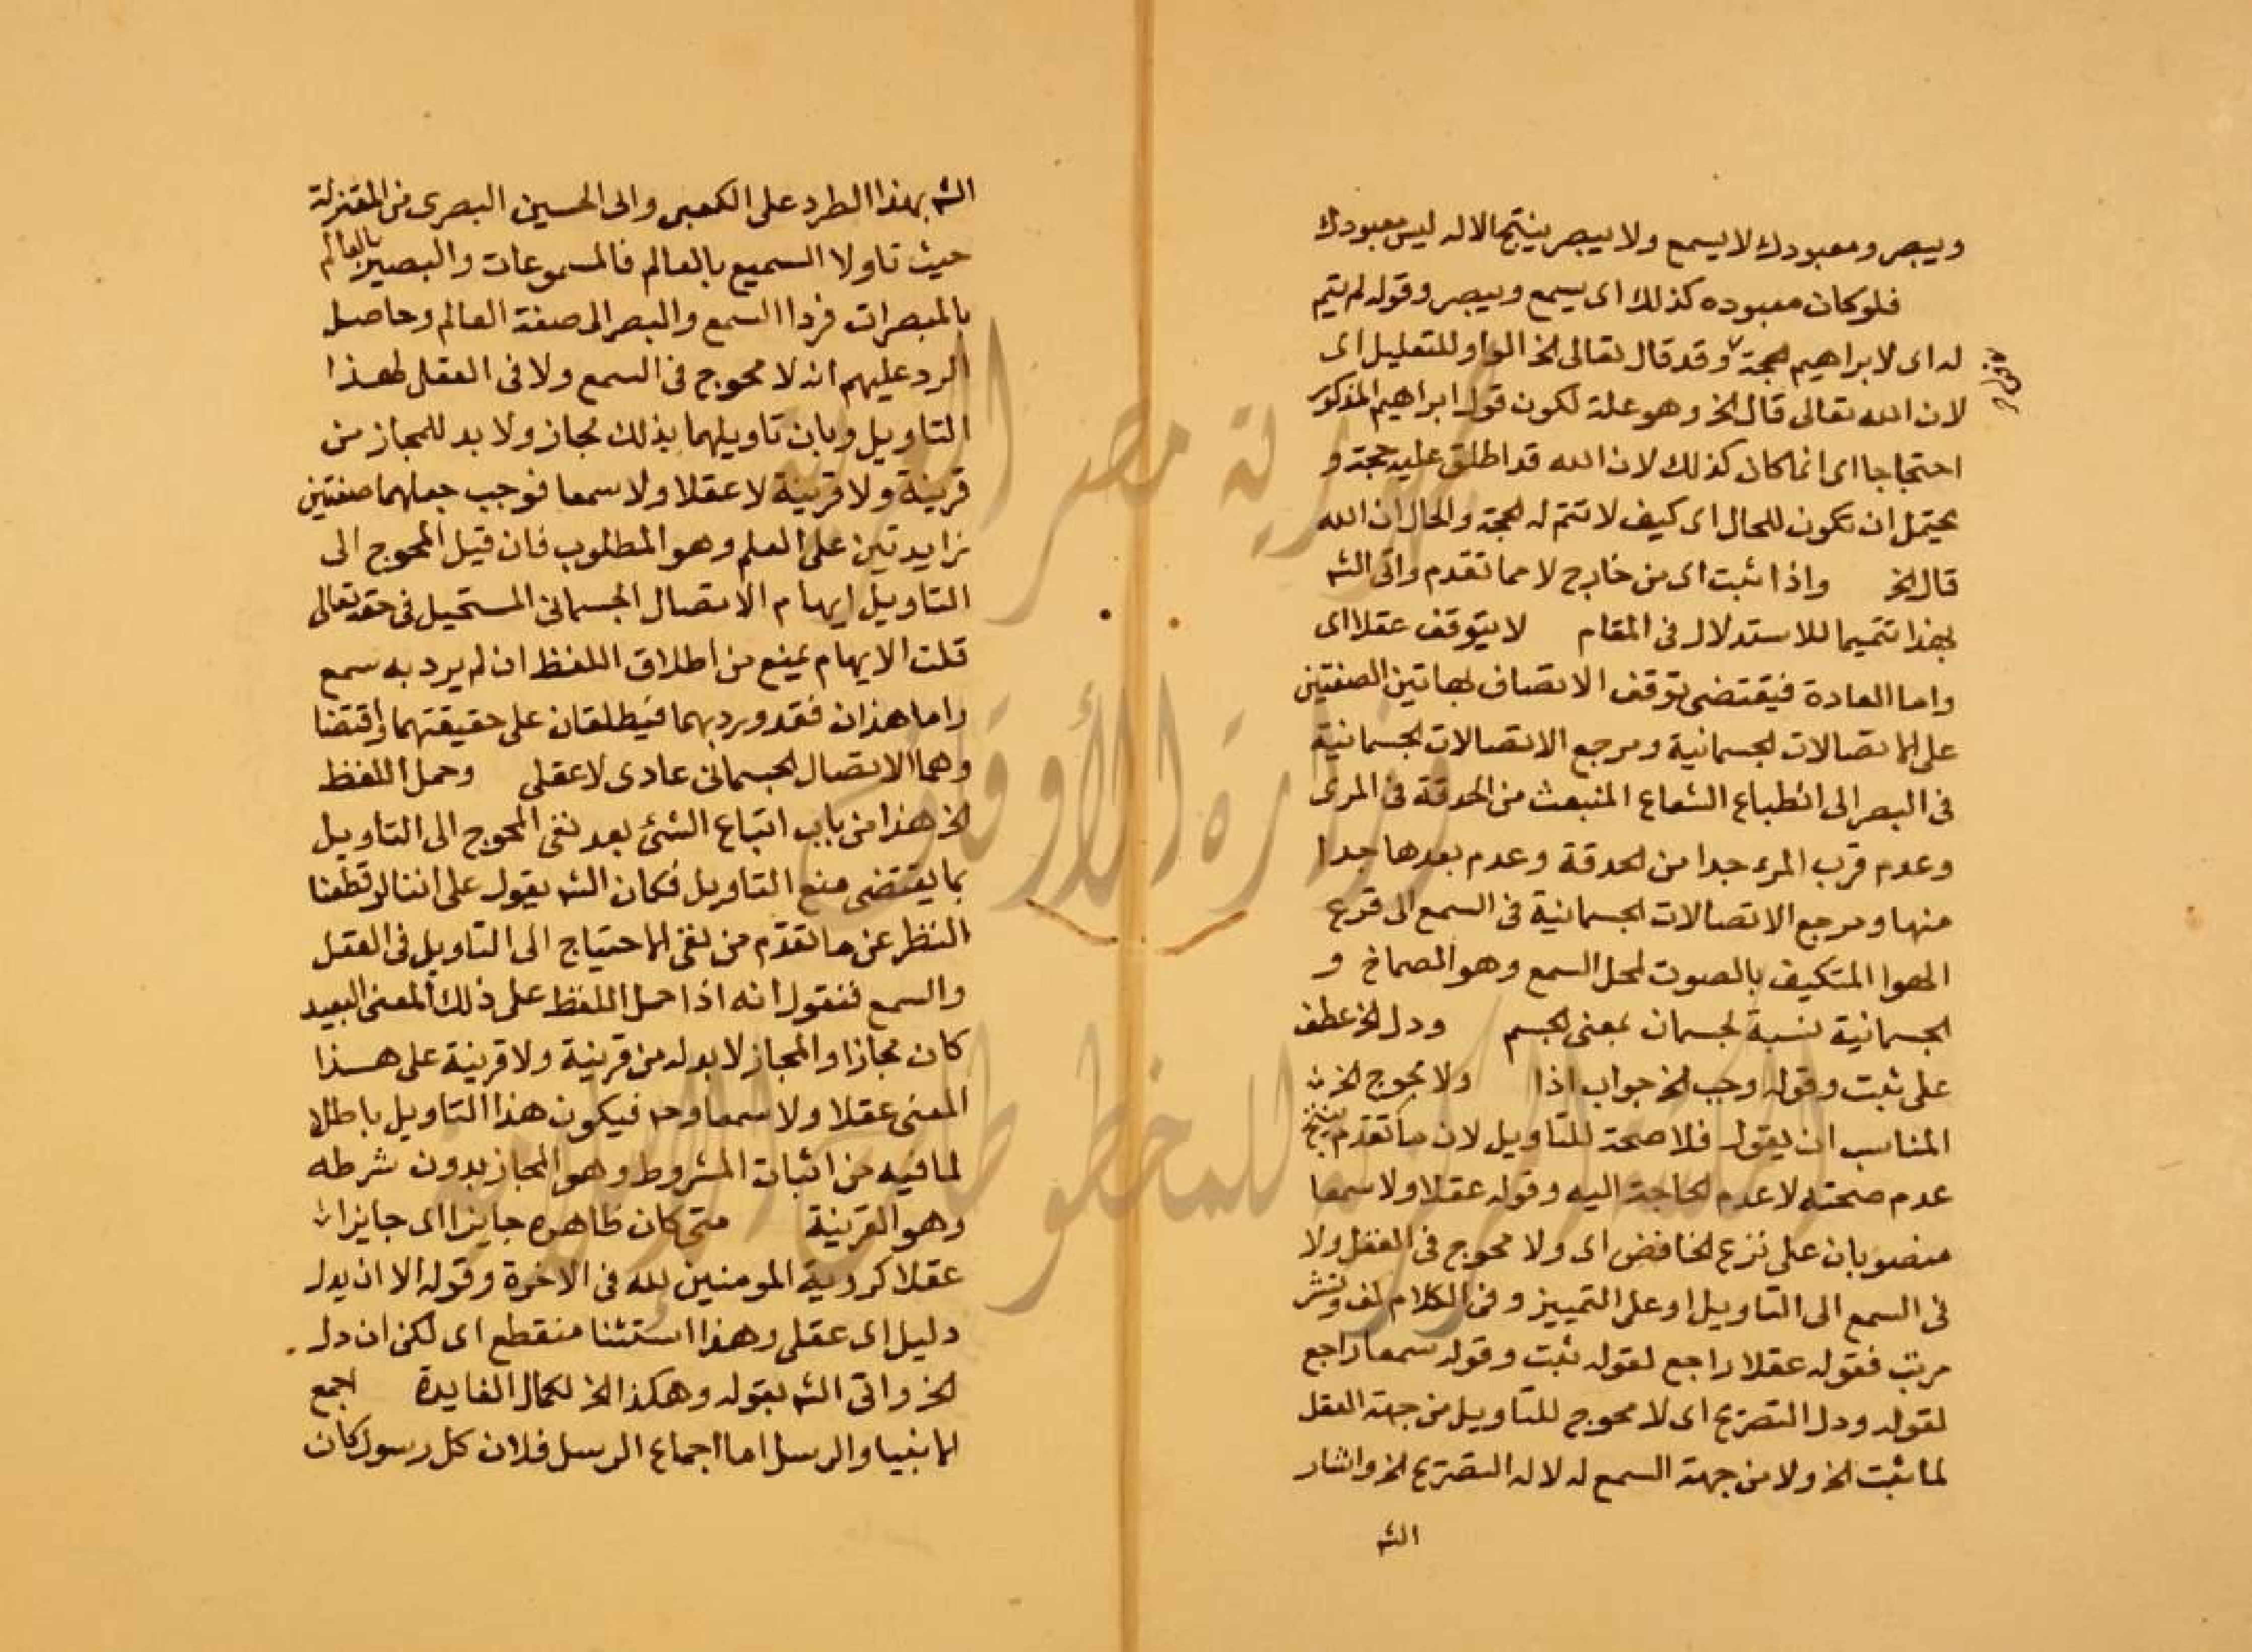 ويبصر ومعبودك لا يسمع ولا يبصر ينتج لا اله ليس معبودك
فلو كان معبوده كذلك اى يسمع ويبصر وقوله لم يتم
له اى لابراهيم الحجة وقد قال تعالى الخ الواو للتعليل اى
لان الله تعالى قال الخ وهو علة لكون قول ابراهيم المذكور
احتجاجا اى انما كان كذلك لان الله قد اطلق عليه حجة و
يحتمل ان تكون للحال اى كيف لا تتم له الحجة والحال ان الله
قال الخ واذا ثبت اى من خارج لا مما تقدم واتى الشه
بهذا تتميما للاستدلال فى المقام لا يتوقف عقلا اى
واما العادة فيقتضى توقف الاتصاف بهاتين الصفتين
على الاتصالات الجسمانية ومرجع الاتصالات الجسمانية
فى البصر الى انطباع الشعاع المنبعث من الحدقة فى المرى
وعدم قرب المرء جدا من الحدقة وعدم بعدها جدا
منها ومرجع الاتصالات الجسمانية فى السمع الى قرع
الهوا المتكيف بالصوت لمحل السمع وهو الصماخ و
الجسمانية نسبة لجسمان بمعنى الجسم ودل الخ عطف
على ثبت وقوله وجب الخ جواب اذا ولا محوج الخ
المناسب ان يقول فلا صحة للتاويل لان ما تقدم ينتج
عدم صحته لا عدم الحاجة اليه وقوله عقلا ولا سمعا
منصوبان على نزع الخافض اى ولا محوج فى العقل ولا
فى السمع الى التاويل او على التمييز وفى الكلام لف ونشر
مرتب فقوله عقلا راجع لقوله ثبت وقوله سمعا راجع
لقوله ودل التصريح اى لا محوج للتاويل من جهة العقل
لما ثبت الخ ولا من جهة السمع لدلاله التصريح الخ واشار
الشه
الشه بهذا الطرد على الكعبى والى الحسين البصرى من المعتزلة
حيث تاولا السميع بالعالم فالمسموعات والبصير بالعالم
بالمبصرات فردا السمع والبصر الى صفة العالم وحاصل
الرد عليهم انه لا محوج فى السمع ولا فى العقل لهذا
التاويل وبان تاويلهما بذلك مجاز ولا بد للمجاز من
قرينة ولا قرينة لا عقلا ولا سمعا فوجب جعلهما صفتين
زايدتين على العلم وهو المطلوب فان قيل المحوج الى
التاويل ايهام الاتصال الجسمانى المستحيل فى حقه تعالى
قلت الايهام يمنع من اطلاق اللفظ ان لم يرد به سمع
واما هذان فقد ورد بهما فيطلقان على حقيقتهما واقتضا
وهما الاتصال الجسمانى عادى لا عقلى وحمل اللفظ
الخ هذا من باب اتباع الشئ بعد نفى المحوج الى التاويل
بما يقتضى منع التاويل فكان الشه يقول على اننا لو قطعنا
النظر عن ما تقدم من نفى الاحتياج الى التاويل فى العقل
والسمع فنقول انه اذا حمل اللفظ على ذلك المعنى البعيد
كان مجازا والمجاز لا بد له من قرينة ولا قرينة على هذا
المعنى عقلا ولا سمعا وح فيكون هذا التاويل باطلا
لما فيه من اثبات المشروط وهو المجاز بدون شرطه
وهو القرينة متى كان ظاهره جايزا اى جايزا
عقلا كروية المومنين لله فى الاخرة وقوله الا ان يدل
دليل اى عقلى وهذا استثنا منقطع اى لكن ان دل
الخ واتى الشه بقوله وهكذا الخ لكمال الفايدة اجمع
الانبيا والرسل اما اجماع الرسل فلان كل رسول كان